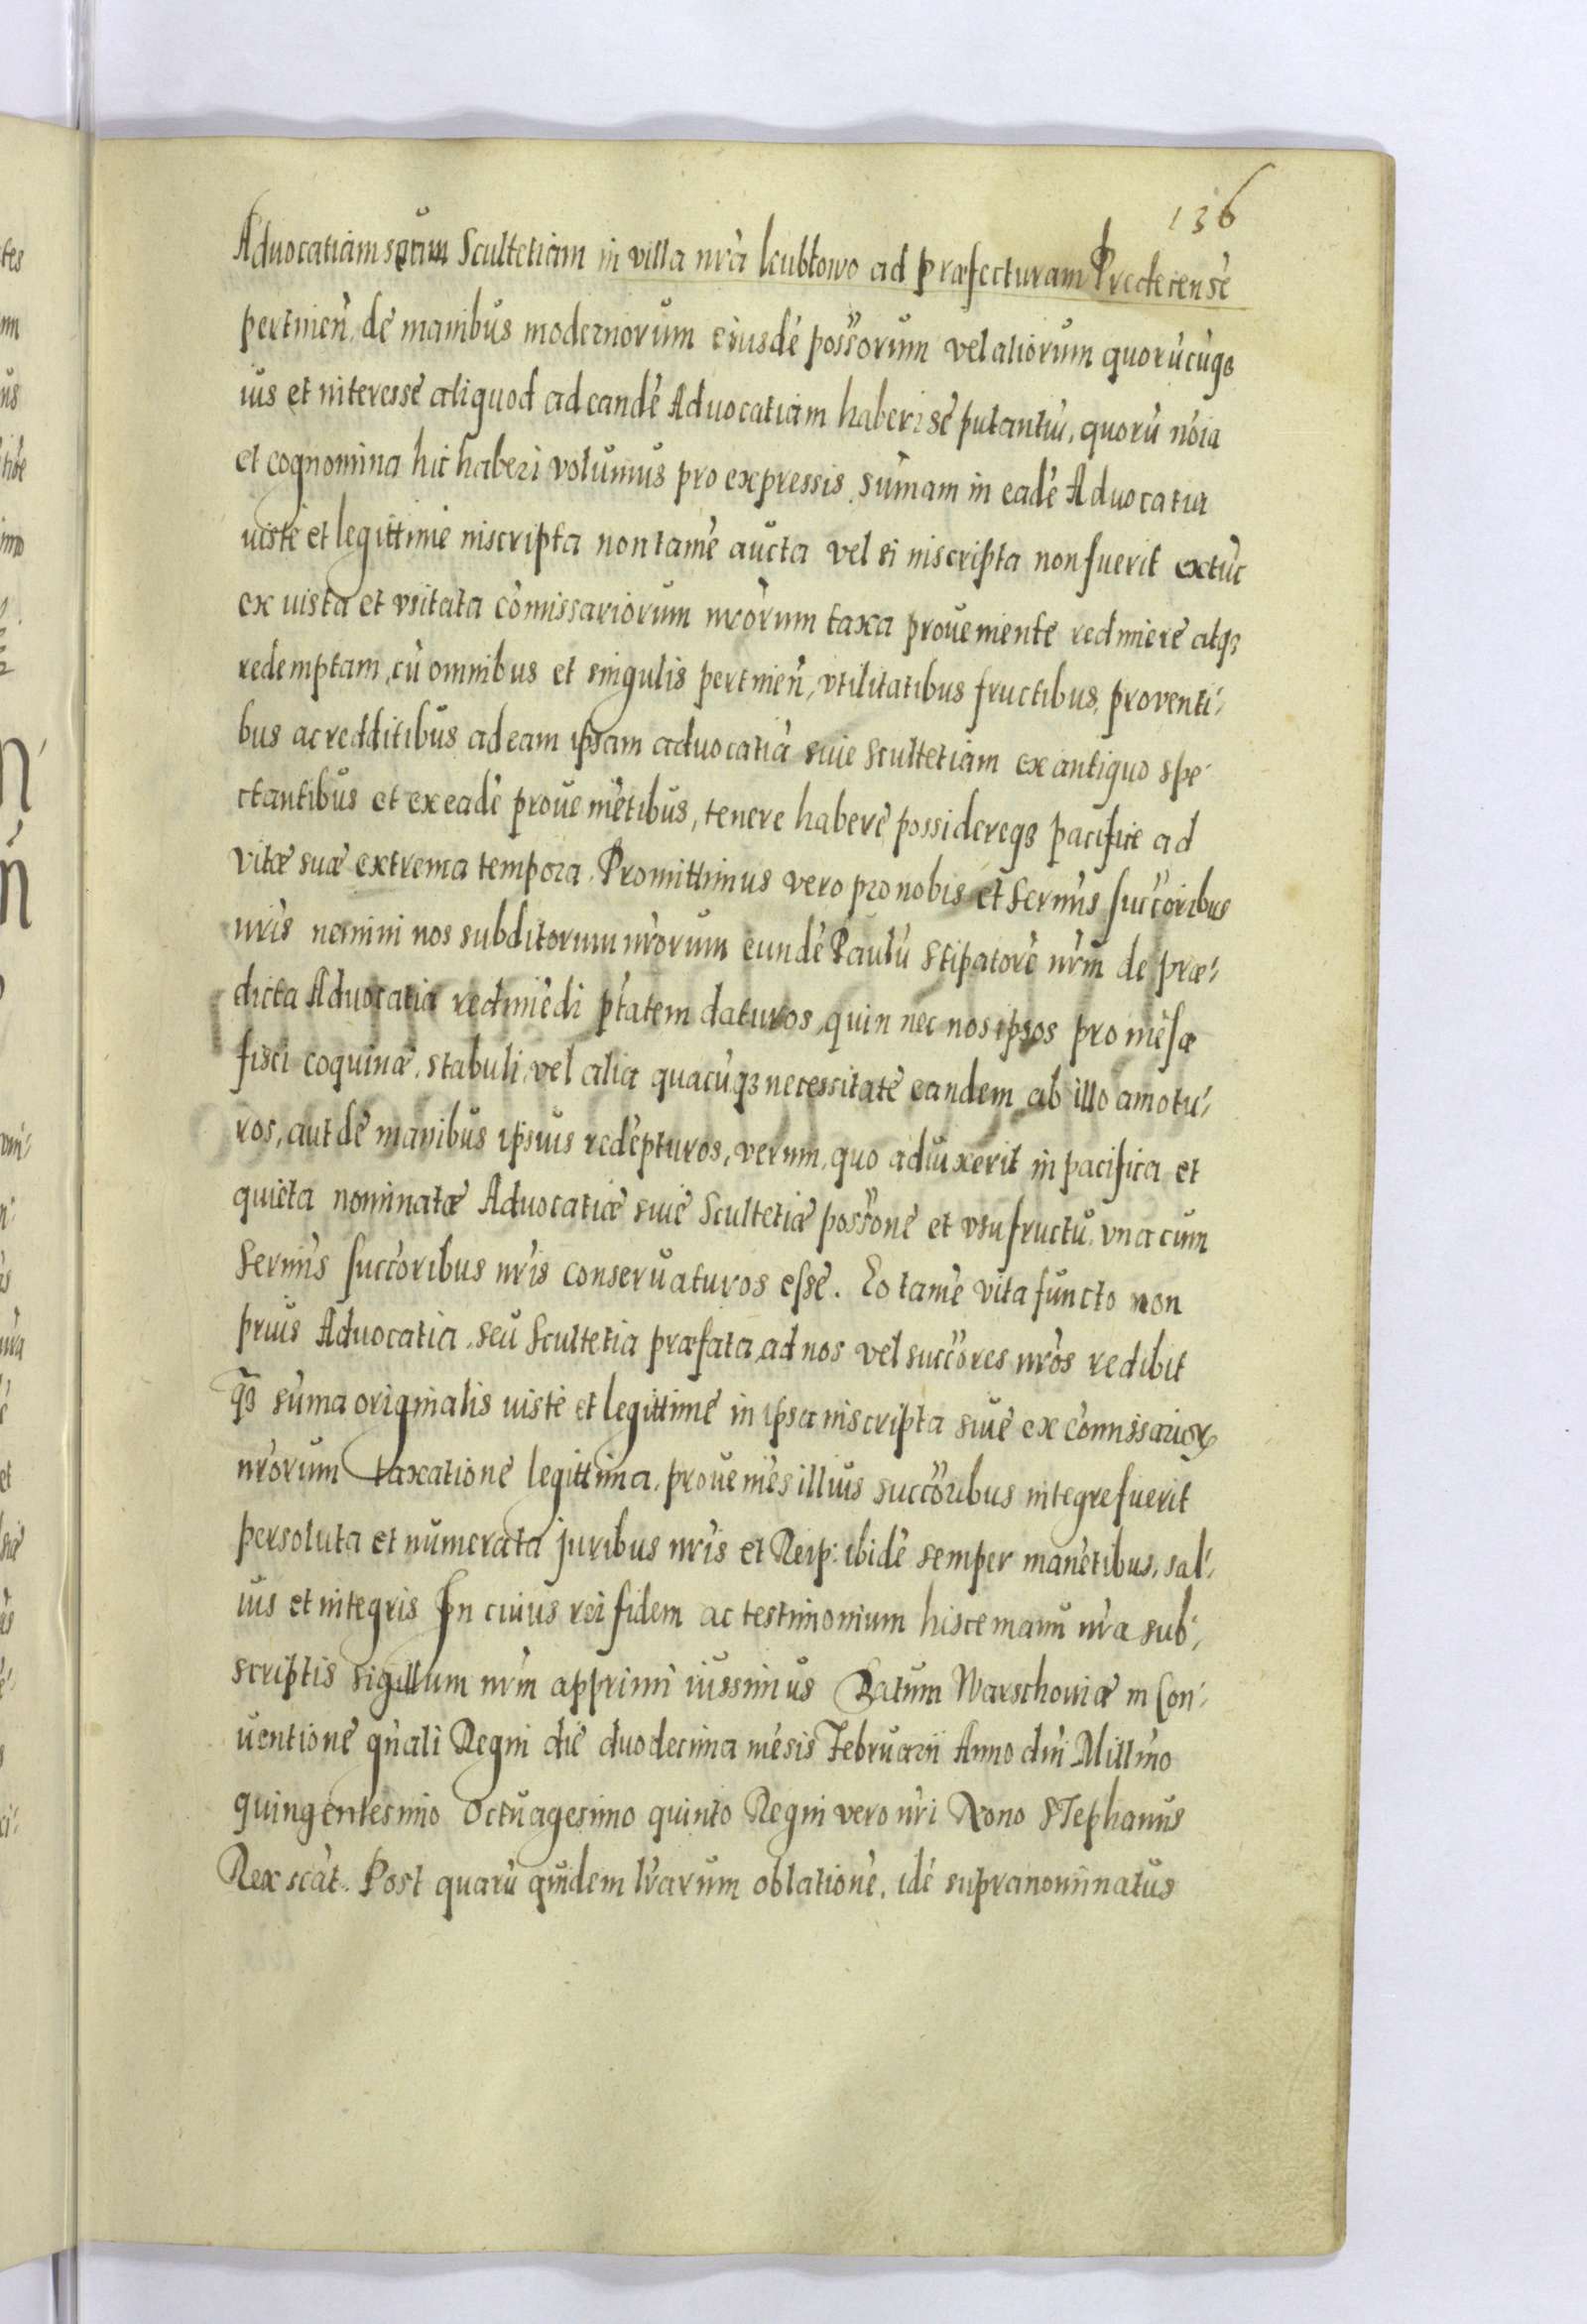 136
Advocatiam Scultetiam in villa nrã Lcubłowo ad præfecturam Predecensē
pertineñ. de manibus modernorum eiusdē possorum vel aliorum quorūcūqȝ
ius et interesse aliquod ad eandē Advocatiam haberi sē putantiū, quorū noīa
et cognomina hic haberi volumus pro expressis, sumam in eadē Advocatia
iuste et legittime inscripta non tamē aucta vel si inscripta non fuerit extūc
ex iusta et vsitata comissariorum nrorum taxa proueniente redimere atqȝ
redemptam, cū omnibus et singulis pertineñ, vtilitatibus fructibus, proventi-
bus ac redditibus ad eam ipsam advocatiā siue scultetiam ex antiquo spe-
ctantibus et ex eadē prouenietibus, tenere habere possidereqȝ pacifice ad
vitæ suæ extrema tempora. Promittimus vero pro nobis et Sermis succoribus
nris nemini nos subditorum nrorum eundē Paulū Stipatorē nrm de præ-
dicta Advocatia redimēdi ptatem daturos, quin nec nos ipsos pro mēsæ
fisci coquinæ, stabuli, vel alia quacūqȝ necessitatē eandem ab illo amotu-
ros, aut de manibus ipsius redēpturos, verum, quo adiuxerit in pacifica et
quieta nominatæ Advocatiæ siue Scultetiæ possone et vsufructu, vna cum
Sermis succoribus nris conseruaturos esse. Eo tamē vita functo non
prius Advocatia, seu Scultetia præfata, ad nos vel succores nros redibit
qȝ suma originalis iuste et legittime in ipsa inscripta siue ex comissarioꝝ
nrorum taxatione legittima, prouenies illius succoribus integre fuerit
persoluta et numerata juribus nris et Reip: ibidē semper manētibus, sal-
uis et integris In cuius rei fidem ac testimonium hisce manu nra sub-
scriptis sigillum nrm apprimi iussimus Datum Warschouiæ in Con-
uentione gnali Regni die duodecima mēsis Februarii Anno dni Millmo
quingentesimo octuagesimo quinto Regni vero nri Nono STephanus
Rex scāt. Post quarū quidem lrarum oblationē, idē supranominatus